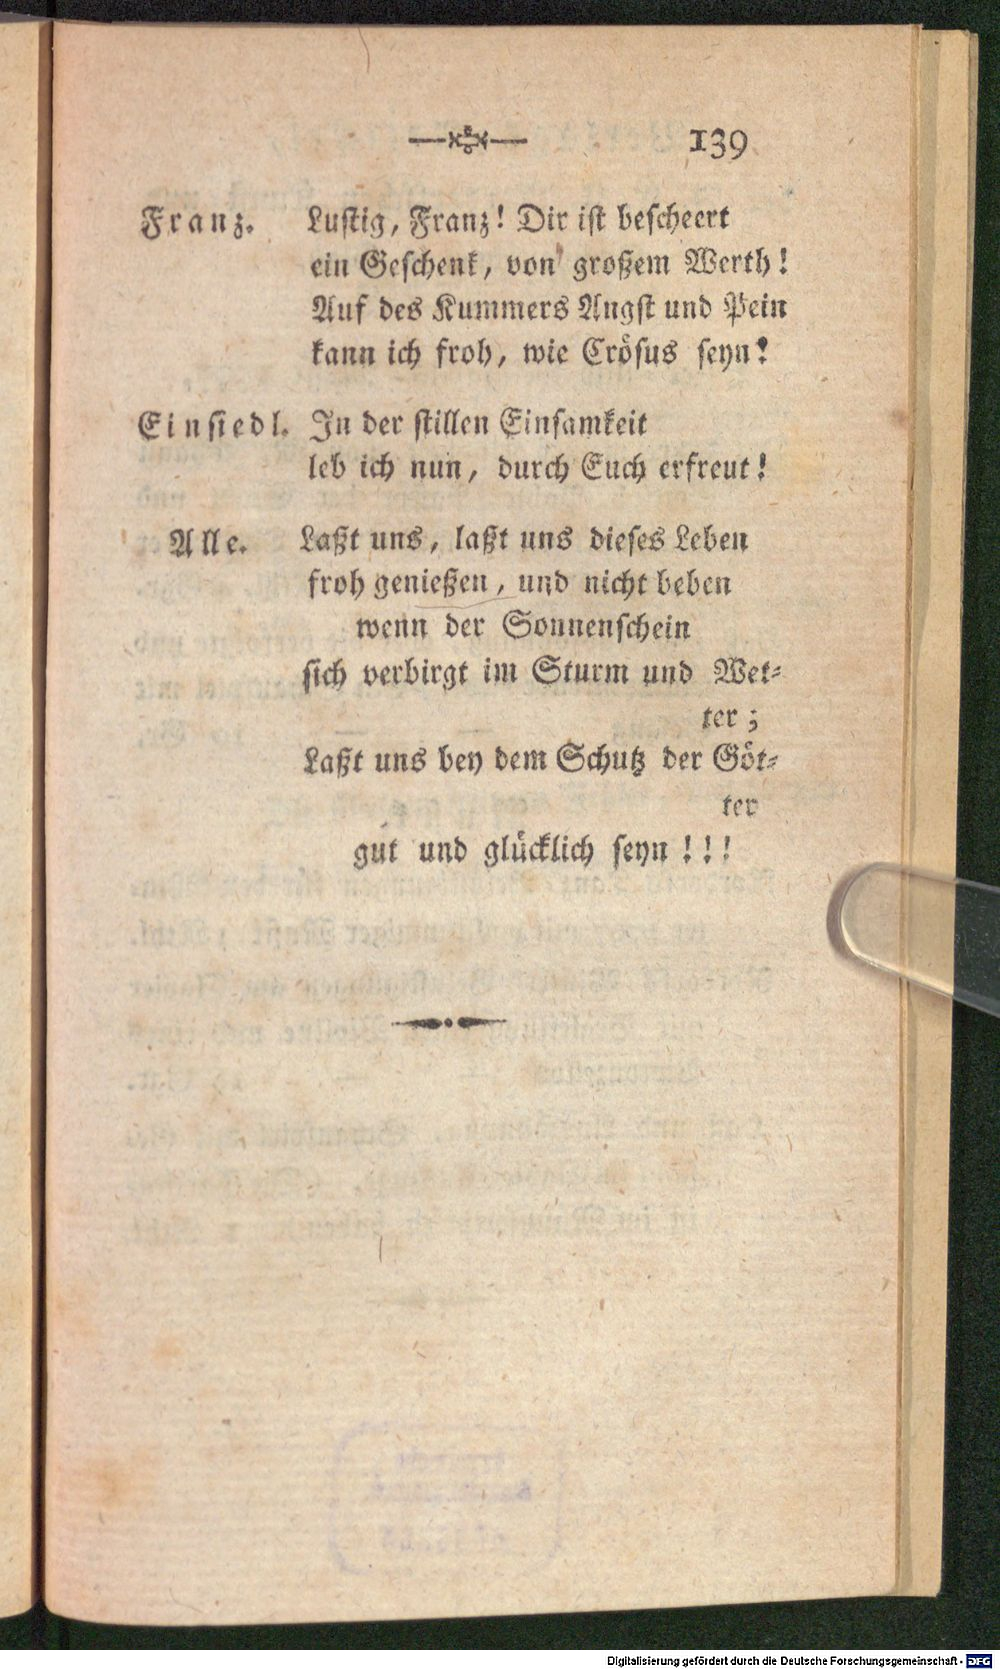 139
Franz. Lustig, Franz! Dir ist bescheert
ein Geschenk, von großem Werth!
Auf des Kummers Angst und Pein
kann ich froh, wie Crösus seyn!
Einsiedl. In der stillen Einsamkeit
leb ich nun, durch Euch erfreut!
Alle. Laßt uns, laßt uns dieses Leben
froh genießen, und nicht beben
wenn der Sonnenschein
sich verbirgt im Sturm und Wet-
ter;
Laßt uns bey dem Schutz der Göt-
ter
gut und glücklich seyn!!!
Digitalisierung gefördert durch die Deutsche Forschungsgemeinschaft - DFG